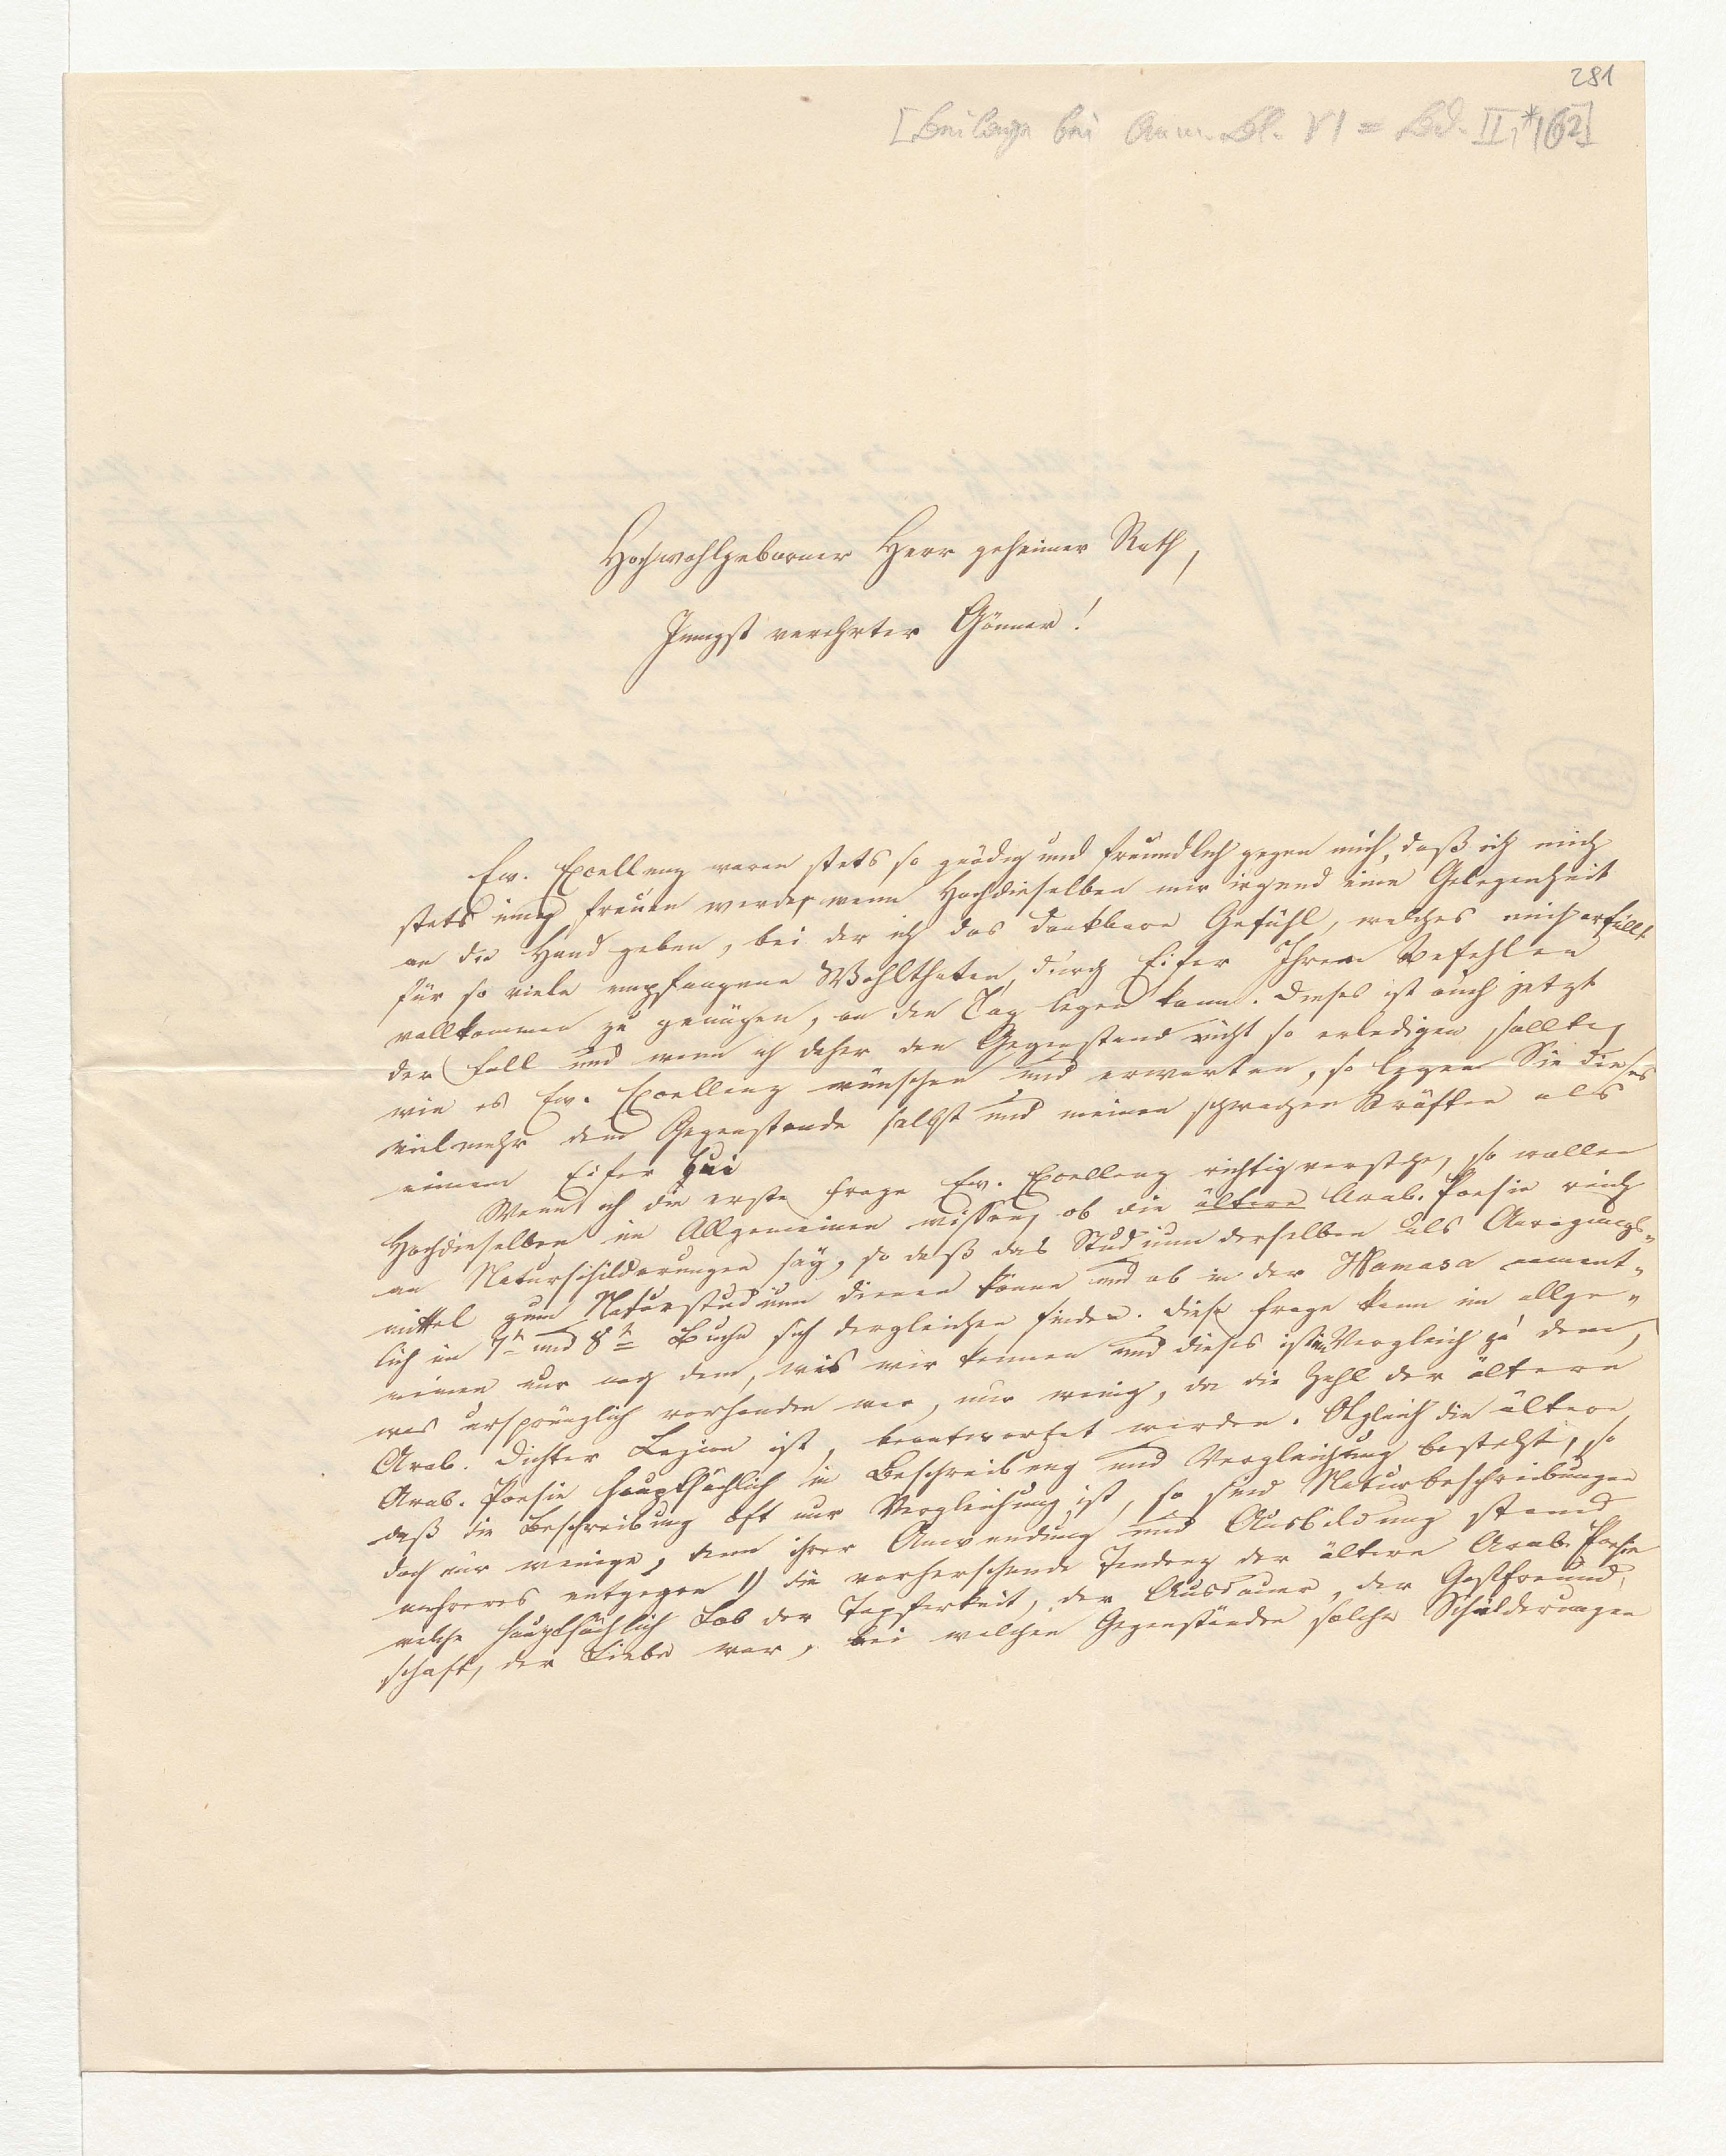 281
[Beilage bei Anm. Bl. VI = Bd. II,* 162]
Hochwohlgeborner Herr geheimer Rath,
Innigst verehrter Gönner!
Ew. Excellenz waren stets so gnädig und freundlich gegen mich, daß ich mich
stets innig freuen werde, wenn Hochdieselben mir irgend eine Gelegenheit
an die Hand geben, bei der ich das dankbare Gefühl, welches mich erfüllt
für so viele empfangene Wohlthaten, durch Eifer Ihren Befehlen
vollkommen zu genügen, an den Tag legen kann. Dieses ist auch jetzt
der Fall und wenn ich daher den Gegenstand nicht so erledigen sollte,
wie es Ew. Excellenz wünschen und erwarten, so legen Sie dieses
vielmehr dem Gegenstande selbst und meinen schwachen Kräften als
meinem Eifer bei
Wenn ich die erste Frage Ew. Excellenz richtig verstehe, so wollen
Hochdieselben im Allgemeinen wissen, ob die ältere Arab. Poesie reich
an Naturschilderungen sey, so daß das Studium derselben als Anregungs-
mittel zum Naturstudium dienen könne und ob in der Hamasa nament-
lich im 7n und 8n Buche sich dergleichen finden. Diese Frage kann im allge-
meinen nur nach dem, was wir kennen und dieses ist im Vergleich zu dem,
was ursprünglich vorhanden war, nur wenig, da die Zahl der ältern
Arab. Dichter Legion ist, beantwortet werden. Obgleich die ältere
Arab. Poesie hauptsächlich in Beschreibung und Vergleichung besteht, so
daß die Beschreibung oft nur Vergleichung ist, so sind Naturbeschreibungen
doch nur wenige, denn ihrer Anwendung und Ausbildung stand
mehreres entgegen 1) die vorherschende Tendenz der ältern Arab. Poesie
welche hauptsächlich Lob der Tapferkeit, der Ausdauer, der Gastfreund-
schaft, der Liebe war, bei welchen Gegenständen solche Schilderungen